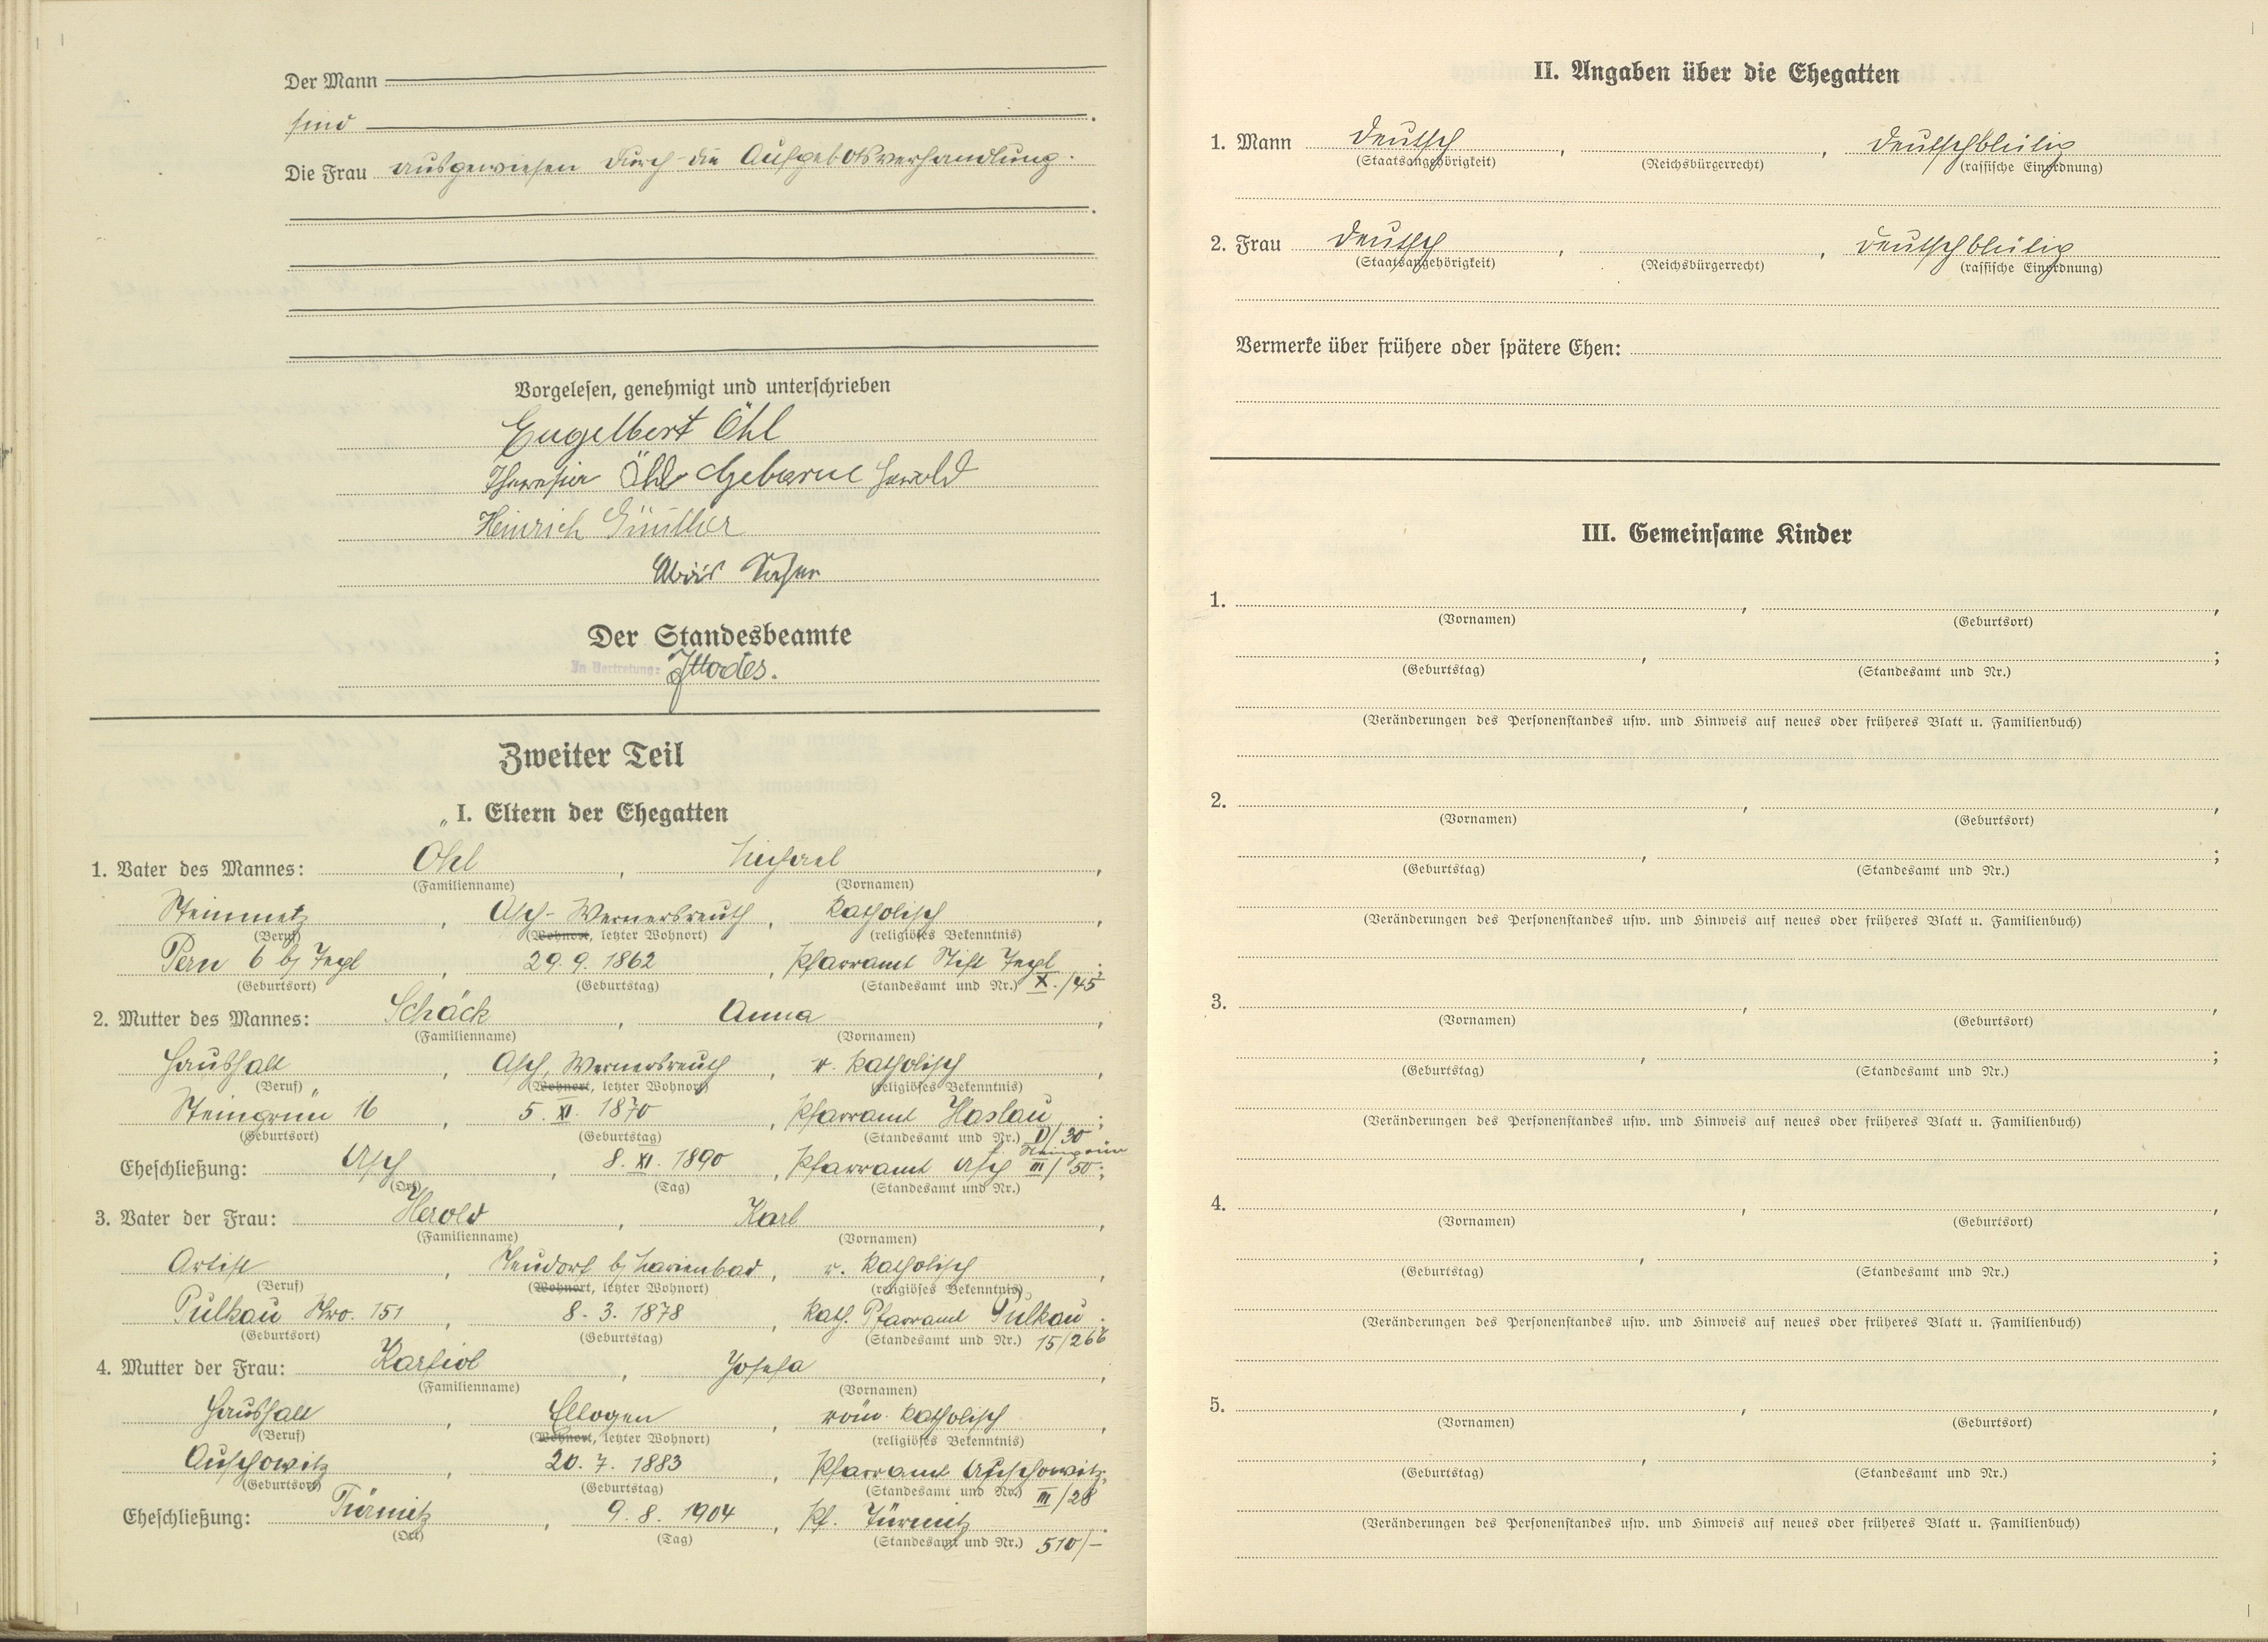 Der Mann
sind .
Die Frau ausgewiesen durch die Aufgebotsverhandlung.
.
Vorgelesen, genehmigt und unterschrieben
Engelbert Öhl
Theresia Öhl Geborne Herold
Heinrich Günther
Alois
Der Standesbeamte
In Vertretung:
Zweiter Teil
I. Eltern der Ehegatten
1. Vater des Mannes: Öhl , Michael ,
(Familienname) (Vornamen)
Steinmetz , Asch-Wernersreuth , katholisch ,
(Beruf) (Wohnort, letzter Wohnort) (religiöses Bekenntnis)
Pern 6 b/ Tepl , 29. 9. 1862 , Pfarramt Stift Tepl ;
(Geburtsort) (Geburtstag) (Standesamt und Nr.) X./45
2. Mutter des Mannes: Schäck , Anna ,
(Familienname) (Vornamen)
Haushalt , Asch, Wernersreuth , r. katholisch ,
(Beruf) (Wohnort, letzter Wohnort) (religiöses Bekenntnis)
Steingrün 16 , 5. XI. 1870 , Pfarramt Haslau ;
(Geburtsort) (Geburtstag) (Standesamt und Nr.) D/30
f. Steingrün
Eheschließung: Asch , 8. XI. 1890 , Pfarramt Asch III/50 ;
(Ort) (Tag) (Standesamt und Nr.)
3. Vater der Frau: Herold , Karl ,
(Familienname) (Vornamen)
Artist , Neudorf b/ Marienbad , r. katholisch ,
(Beruf) (Wohnort, letzter Wohnort) (religiöses Bekenntnis)
Pulkau Nro. 151 , 8. 3. 1878 , kath. Pfarramt Pulkau ;
(Geburtsort) (Geburtstag) (Standesamt und Nr.) 15/266
4. Mutter der Frau: Karfiol , Josefa ,
(Familienname) (Vornamen)
Haushalt , Ellogen , röm. katholisch ,
(Beruf) (Wohnort, letzter Wohnort) (religiöses Bekenntnis)
Auschowitz , 20. 7. 1883 , Pfarramt Auschowitz ;
(Geburtsort) (Geburtstag) (Standesamt und Nr.) III/28
Eheschließung: Türmitz , 9. 8. 1904 , Pf. Türmitz .
(Ort) (Tag) (Standesamt und Nr.) 510/-
II. Angaben über die Ehegatten
1. Mann deutsch , , deutschblütig
(Staatsangehörigkeit) (Reichsbürgerrecht) (rassische Einordnung)
2. Frau deutsch , , deutschblütig
(Staatsangehörigkeit) (Reichsbürgerrecht) (rassische Einordnung)
Vermerke über frühere oder spätere Ehen:
III. Gemeinsame Kinder
1. , ,
(Vornamen) (Geburtsort)
, ;
(Geburtstag) (Standesamt und Nr.)
(Veränderungen des Personenstandes usw. und Hinweis auf neues oder früheres Blatt u. Familienbuch)
2. , ,
(Vornamen) (Geburtsort)
, ;
(Geburtstag) (Standesamt und Nr.)
(Veränderungen des Personenstandes usw. und Hinweis auf neues oder früheres Blatt u. Familienbuch)
3. , ,
(Vornamen) (Geburtsort)
, ;
(Geburtstag) (Standesamt und Nr.)
(Veränderungen des Personenstandes usw. und Hinweis auf neues oder früheres Blatt u. Familienbuch)
4. , ,
(Vornamen) (Geburtsort)
, ;
(Geburtstag) (Standesamt und Nr.)
(Veränderungen des Personenstandes usw. und Hinweis auf neues oder früheres Blatt u. Familienbuch)
5. , ,
(Vornamen) (Geburtsort)
, ;
(Geburtstag) (Standesamt und Nr.)
(Veränderungen des Personenstandes usw. und Hinweis auf neues oder früheres Blatt u. Familienbuch)